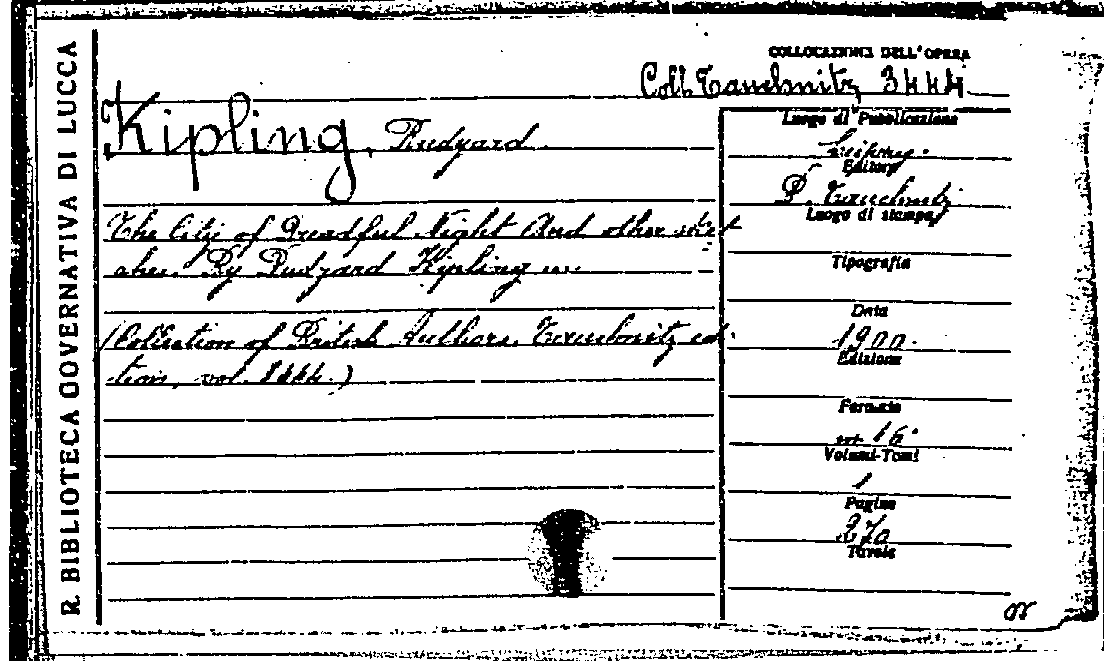 R. BIBLIOTECA GOVERNATIVA DI LUCCA
COLLOCAZIONI DELL'OPERA
Coll. Tauchnitz, 3444
Kipling, Rudyard.
The City of Dreadful Night And other sket
ches. By Rudyard Kipling ...
(Collection of British Authors. Tauchnitz edi-
tion, vol. 3444.)
Luogo di Pubblicazione
Leipzig.
Editore
B. Tauchnitz
Luogo di stampa
Tipografia
Data
1900.
Edizione
Formato
in 16°
Volumi-Tomi
1
Pagine
270
Tavole